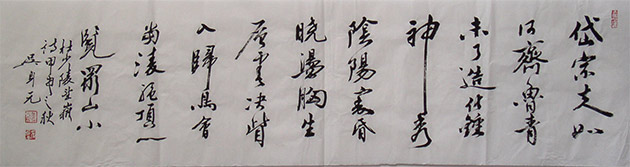 岱宗夫如
何齊魯青
未了造化鍾
神秀
陰陽割昏
曉盪胸生
層雲決眥
入歸鳥會
當凌絕頂一
覽眾山小
杜少陵望嶽
詩甲申之秋